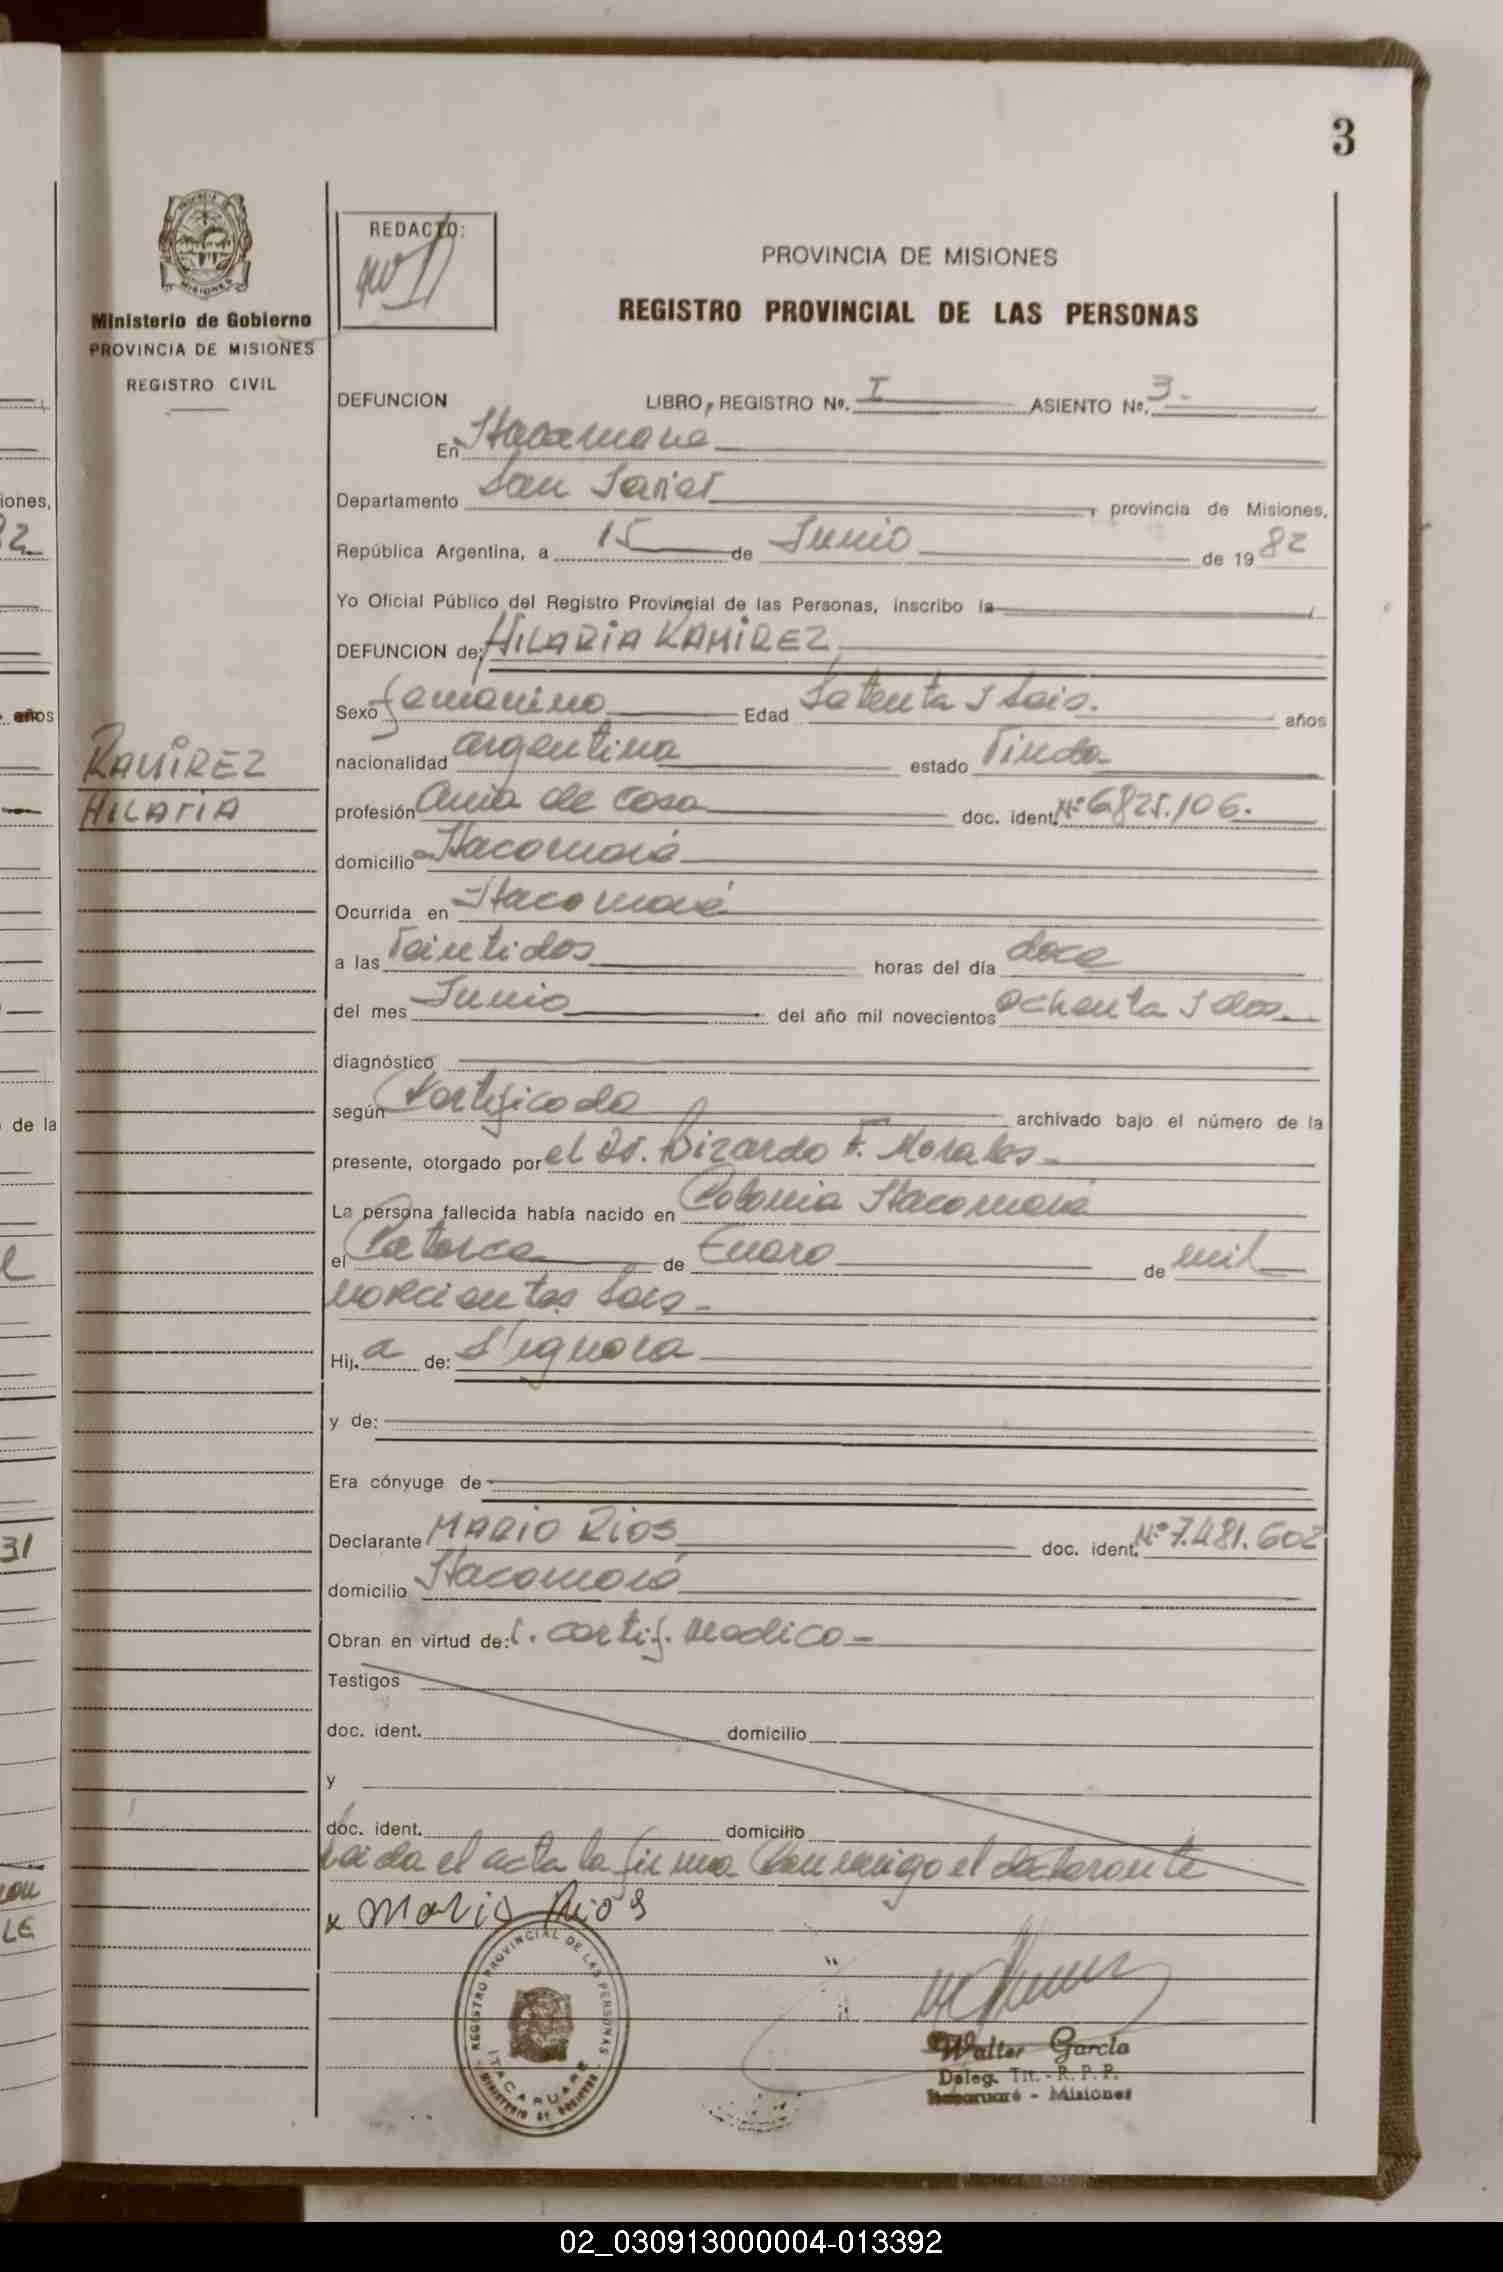 3
REDACTO:
PROVINCIA DE MISIONES
REGISTRO PROVINCIAL DE LAS PERSONAS
Ministerio de Gobierno
PROVINCIA DE MISIONES
REGISTRO CIVIL
DEFUNCION LIBRO, REGISTRO No. I ASIENTO No. 3.
En Itacaruare
Departamento San Javier, provincia de Misiones,
República Argentina, a 15 de Junio de 1982
Yo Oficial Público del Registro Provincial de las Personas, inscribo la
DEFUNCION de: HILARIA RAMIREZ
Sexo femenino Edad Setenta y Seis. años
RAMIREZ
HILARIA
nacionalidad argentina estado Viuda
profesión Ama de casa doc. ident. Nº 6825.106.
domicilio Itacaruaré
Ocurrida en Itacaruaré
a las Veintidos horas del día doce
del mes Junio del año mil novecientos ochenta y dos.
diagnóstico
según Certificado archivado bajo el número de la
presente, otorgado por el Dr. Lizardo F. Morales
La persona fallecida había nacido en Colonia Itacaruaré
el Catorce de Enero de mil
novecientos Seis
Hij. a de: S'ignora
y de:
Era cónyuge de
Declarante MARIO RIOS doc. ident. Nº 7.481.602
domicilio Itacaruaré
Obran en virtud de: c. certif. medico
Testigos
doc. ident. domicilio
y
doc. ident. domicilio
Leida el acta la firma conmigo el declarante
x Mario Rios
REGISTRO PROVINCIAL DE LAS PERSONAS
ITACARUARE
MINISTERIO DE GOBIERNO
Walter García
Deleg. Tit. - R. P. P.
Itacaruaré - Misiones
02_030913000004-013392